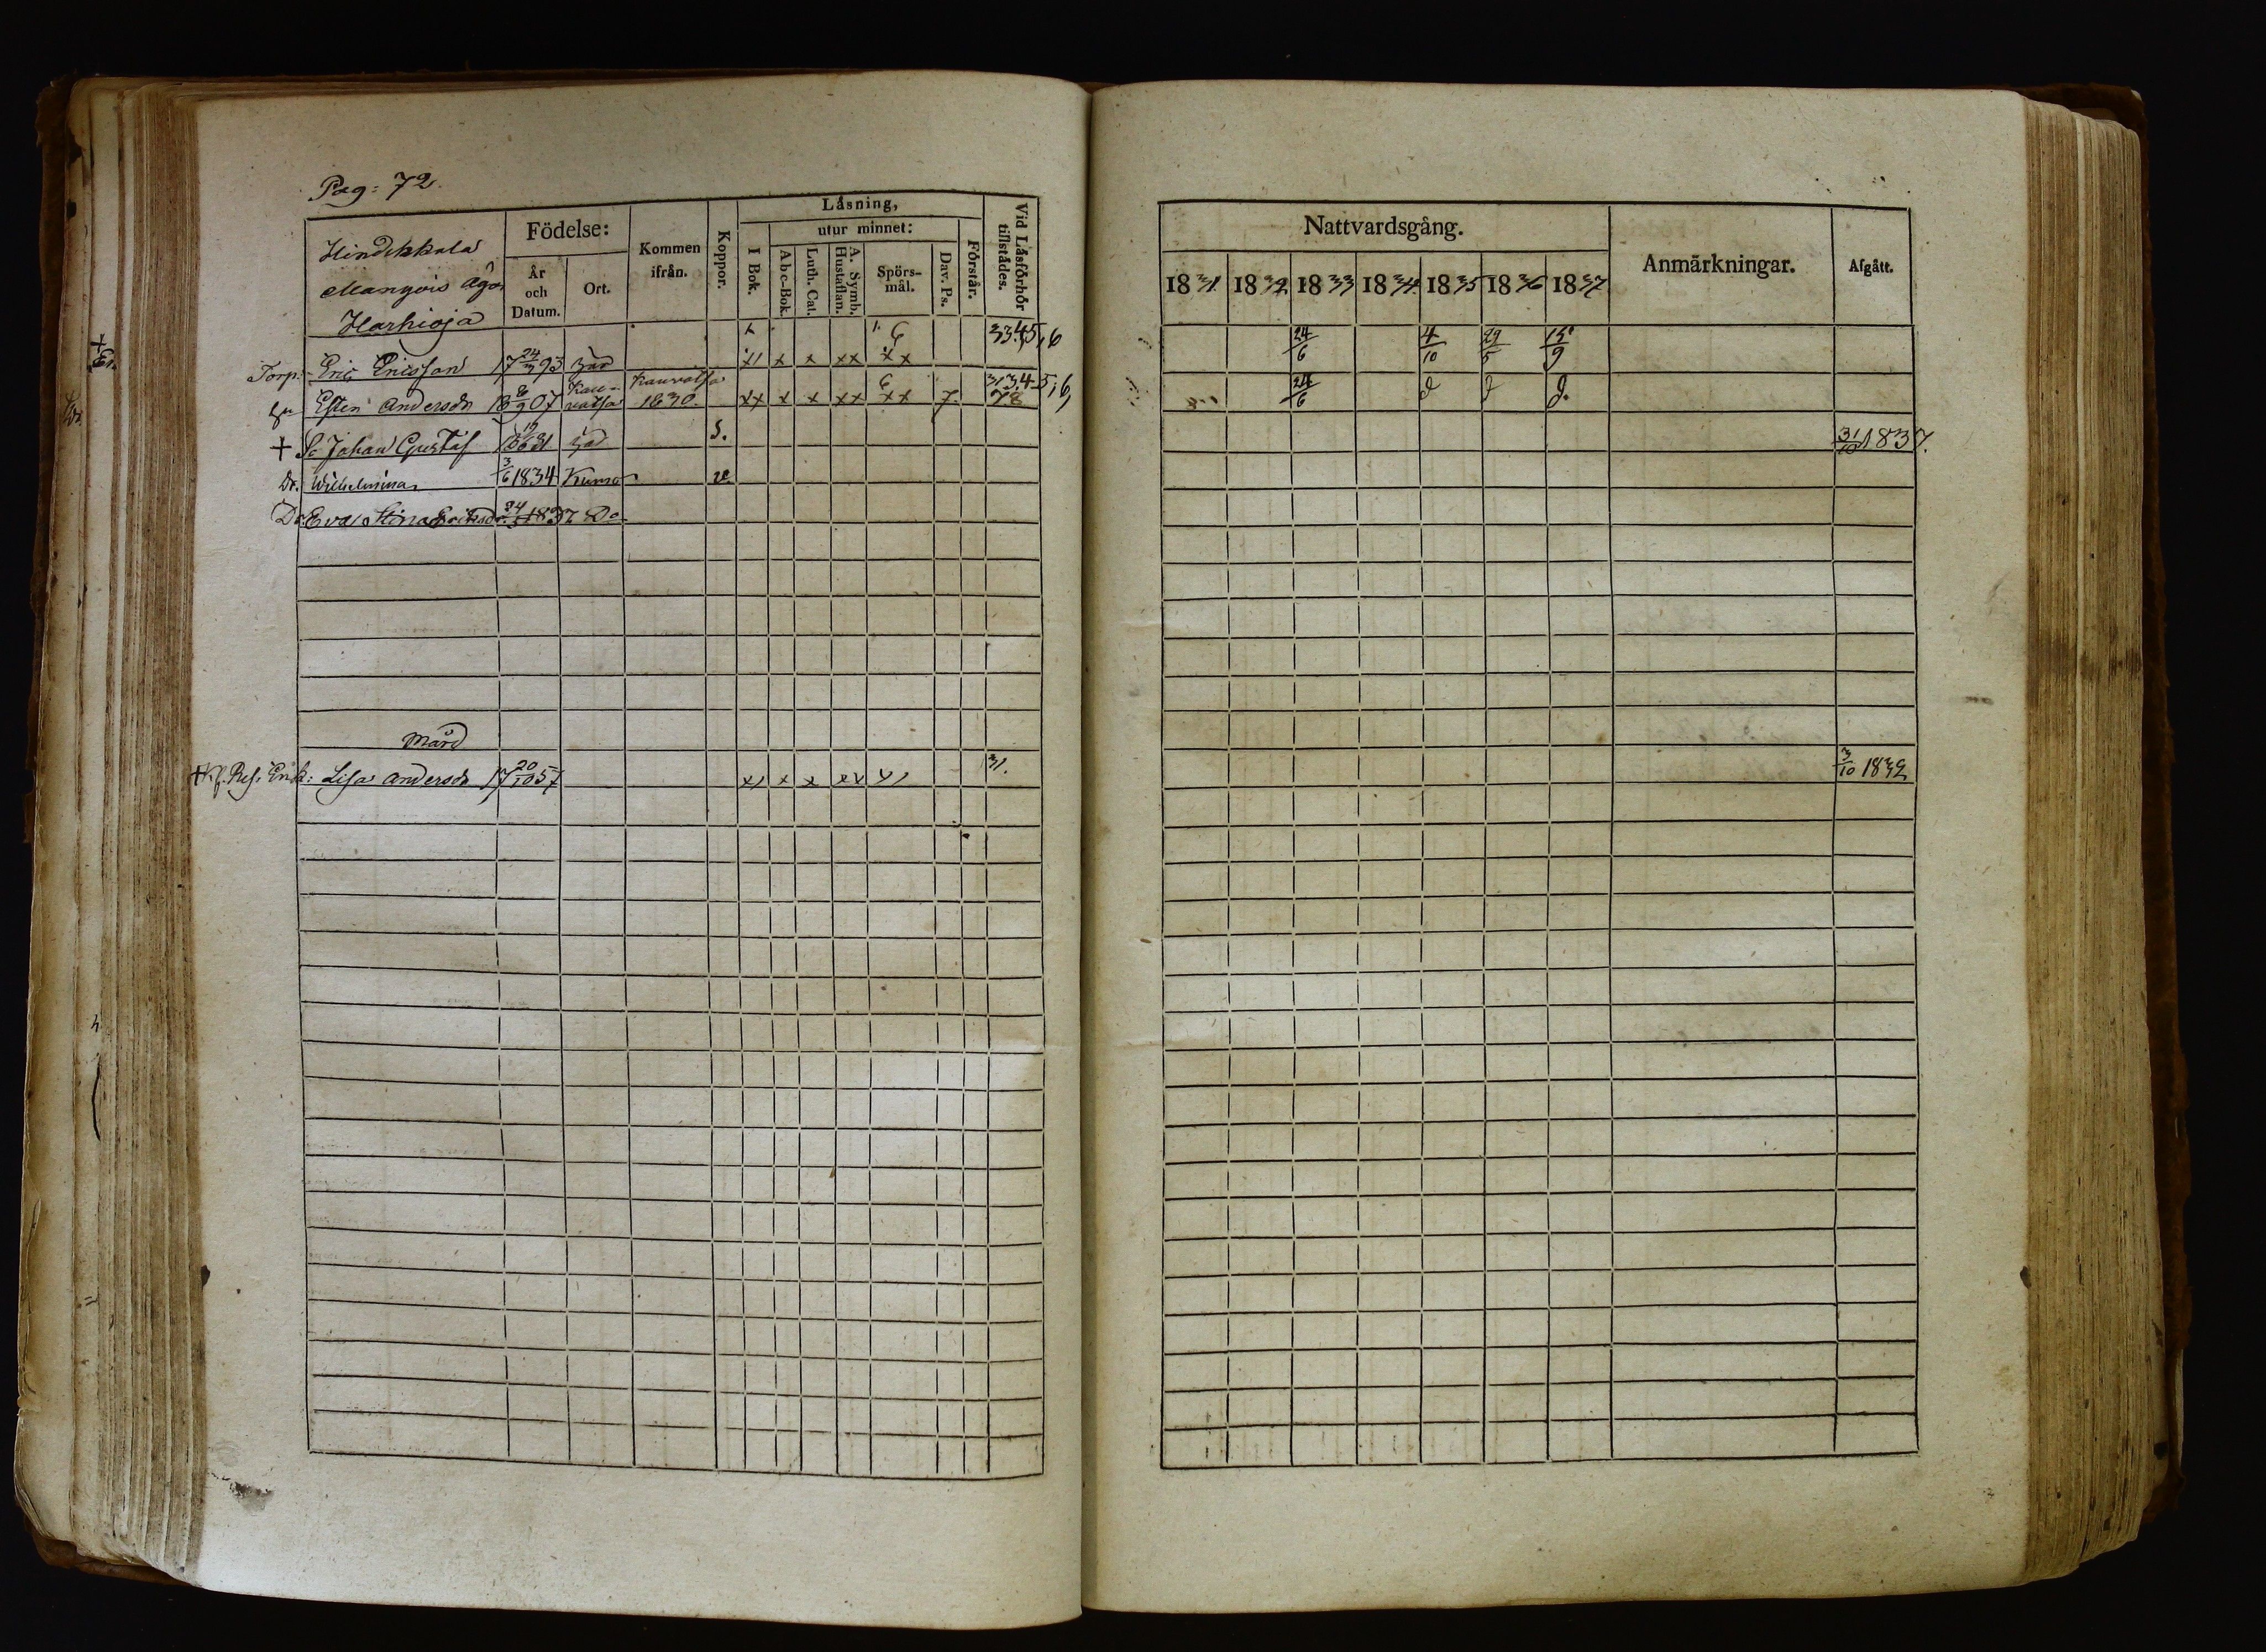 Pag: 72.
Hindikkala
Mangois ägor
Harhioja
Födelse:
År
och
Datum.
Ort.
Kommen
ifrån.
Koppor.
Läsning,
utur minnet:
I Bok.
Abc-Bok.
Luth. Cat.
A. Symb.
Hustaflan.
Spörs-
mål.
Dav. Ps.
Förstår.
Vid Läsförhör
tillstädes.
Torp. Eric Ericsson 17 24/3 93 x x x xx xx 3345,6
hu Esten Andersdr 18 8/9 07 Kau-
vatsa Kauvatsa
1830. xx x x xx xx 7. 3134-5,6,
78
+ S. Johan Gustaf 31 s.
Dr. Wilhelmina 3/6 1834 Kumo v.
Dr. Eva Stina Ericsdr. 24/5 1837 Do
Mård
+ Lisa Andersdr 17 20/10 57 x x xx 31.
Nattvardsgång.
1831 1832 1833 1834 1835 1836 1837
Anmärkningar.
Afgått.
24/6 4/10 29/5 15/9
24/6 d d d.
31/10 1837.
3/10 1832